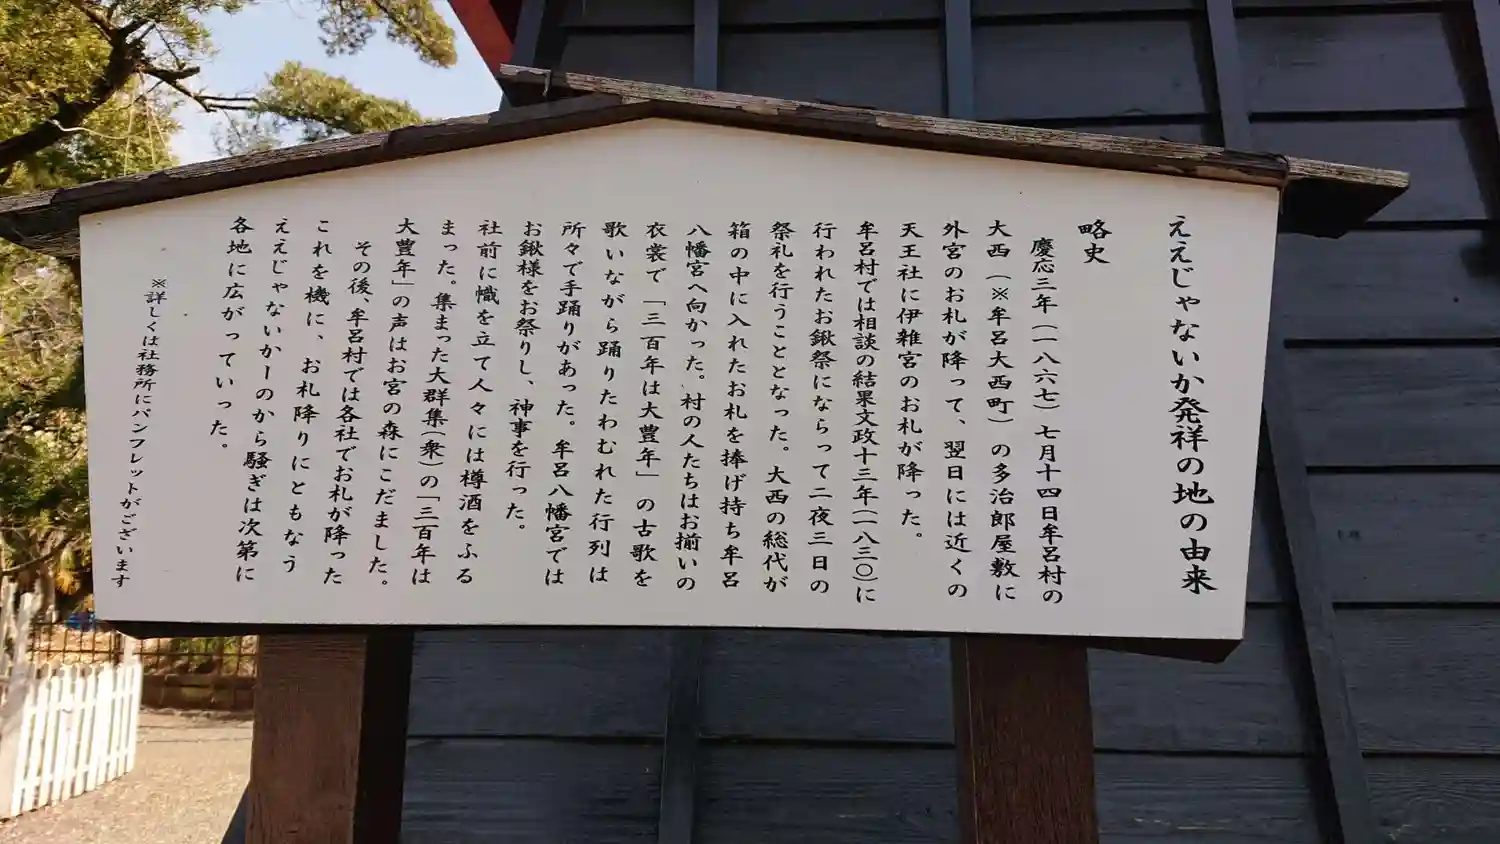 ええじゃないか発祥の地の由来
略史
慶応三年(一八六七)七月十四日牟呂村の
大西(※牟呂大西町)の多治郎屋敷に
外宮のお札が降って、翌日には近くの
天王社に伊雑宮のお札が降った。
牟呂村では相談の結果文政十三年(一八三〇)に
行われたお鍬祭にならって二夜三日の
祭礼を行うこととなった。大西の総代が
箱の中に入れたお札を捧げ持ち牟呂
八幡宮へ向かった。村の人たちはお揃いの
衣裳で「三百年は大豊年」の古歌を
歌いながら踊りたわむれた行列は
所々で手踊りがあった。牟呂八幡宮では
お鍬様をお祭りし、神事を行った。
社前に幟を立て人々には樽酒をふる
まった。集まった大群集(衆)の「三百年は
大豊年」の声はお宮の森にこだました。
その後、牟呂村では各社でお札が降った
これを機に、お札降りにともなう
ええじゃないかーのから騒ぎは次第に
各地に広がっていった。
※詳しくは社務所にパンフレットがございます